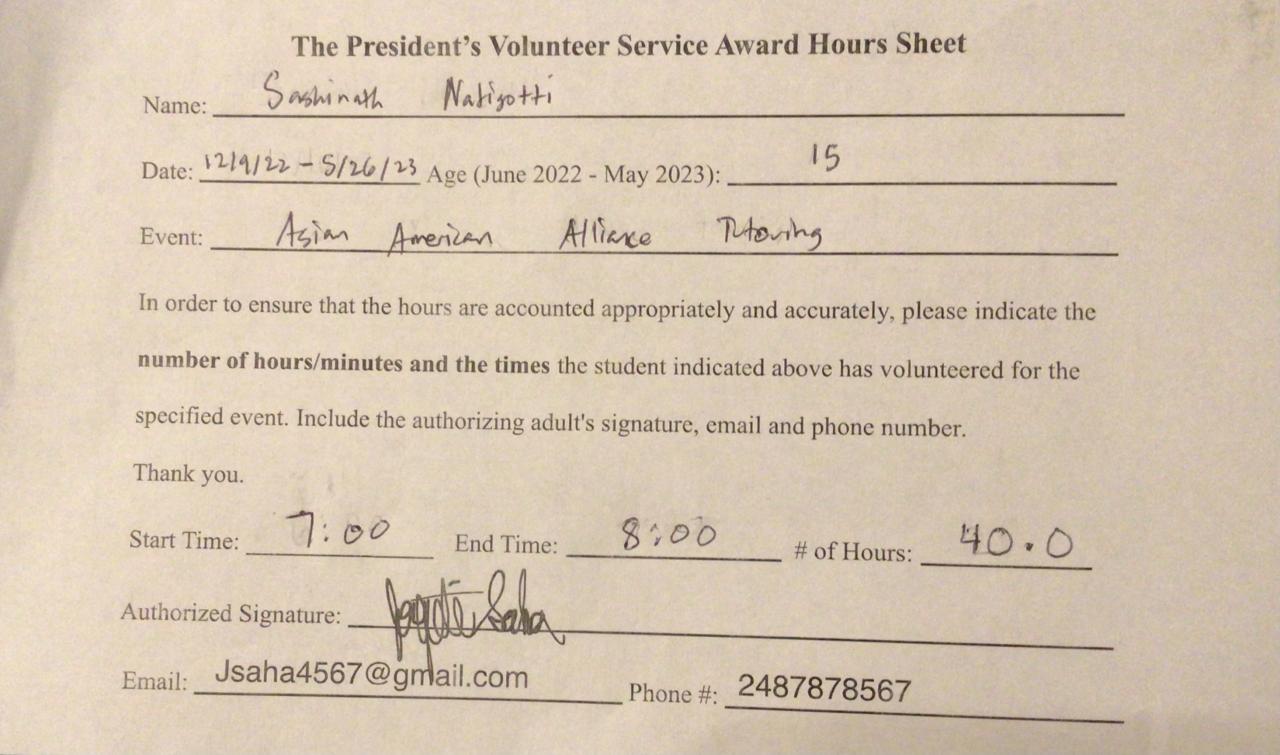 The President's Volunteer Service Award Hours Sheet
Name: Sashinath Natigotti
Date: 12/9/22 - 5/26/23 Age (June 2022 - May 2023): 15
Event: Asian American Alliance Tutoring
In order to ensure that the hours are accounted appropriately and accurately, please indicate the
number of hours/minutes and the times the student indicated above has volunteered for the
specified event. Include the authorizing adult's signature, email and phone number.
Thank you.
Start Time: 7:00 End Time: 8:00 # of Hours: 40.0
Authorized Signature: Saha
Email: Jsaha4567@gmail.com Phone #: 2487878567